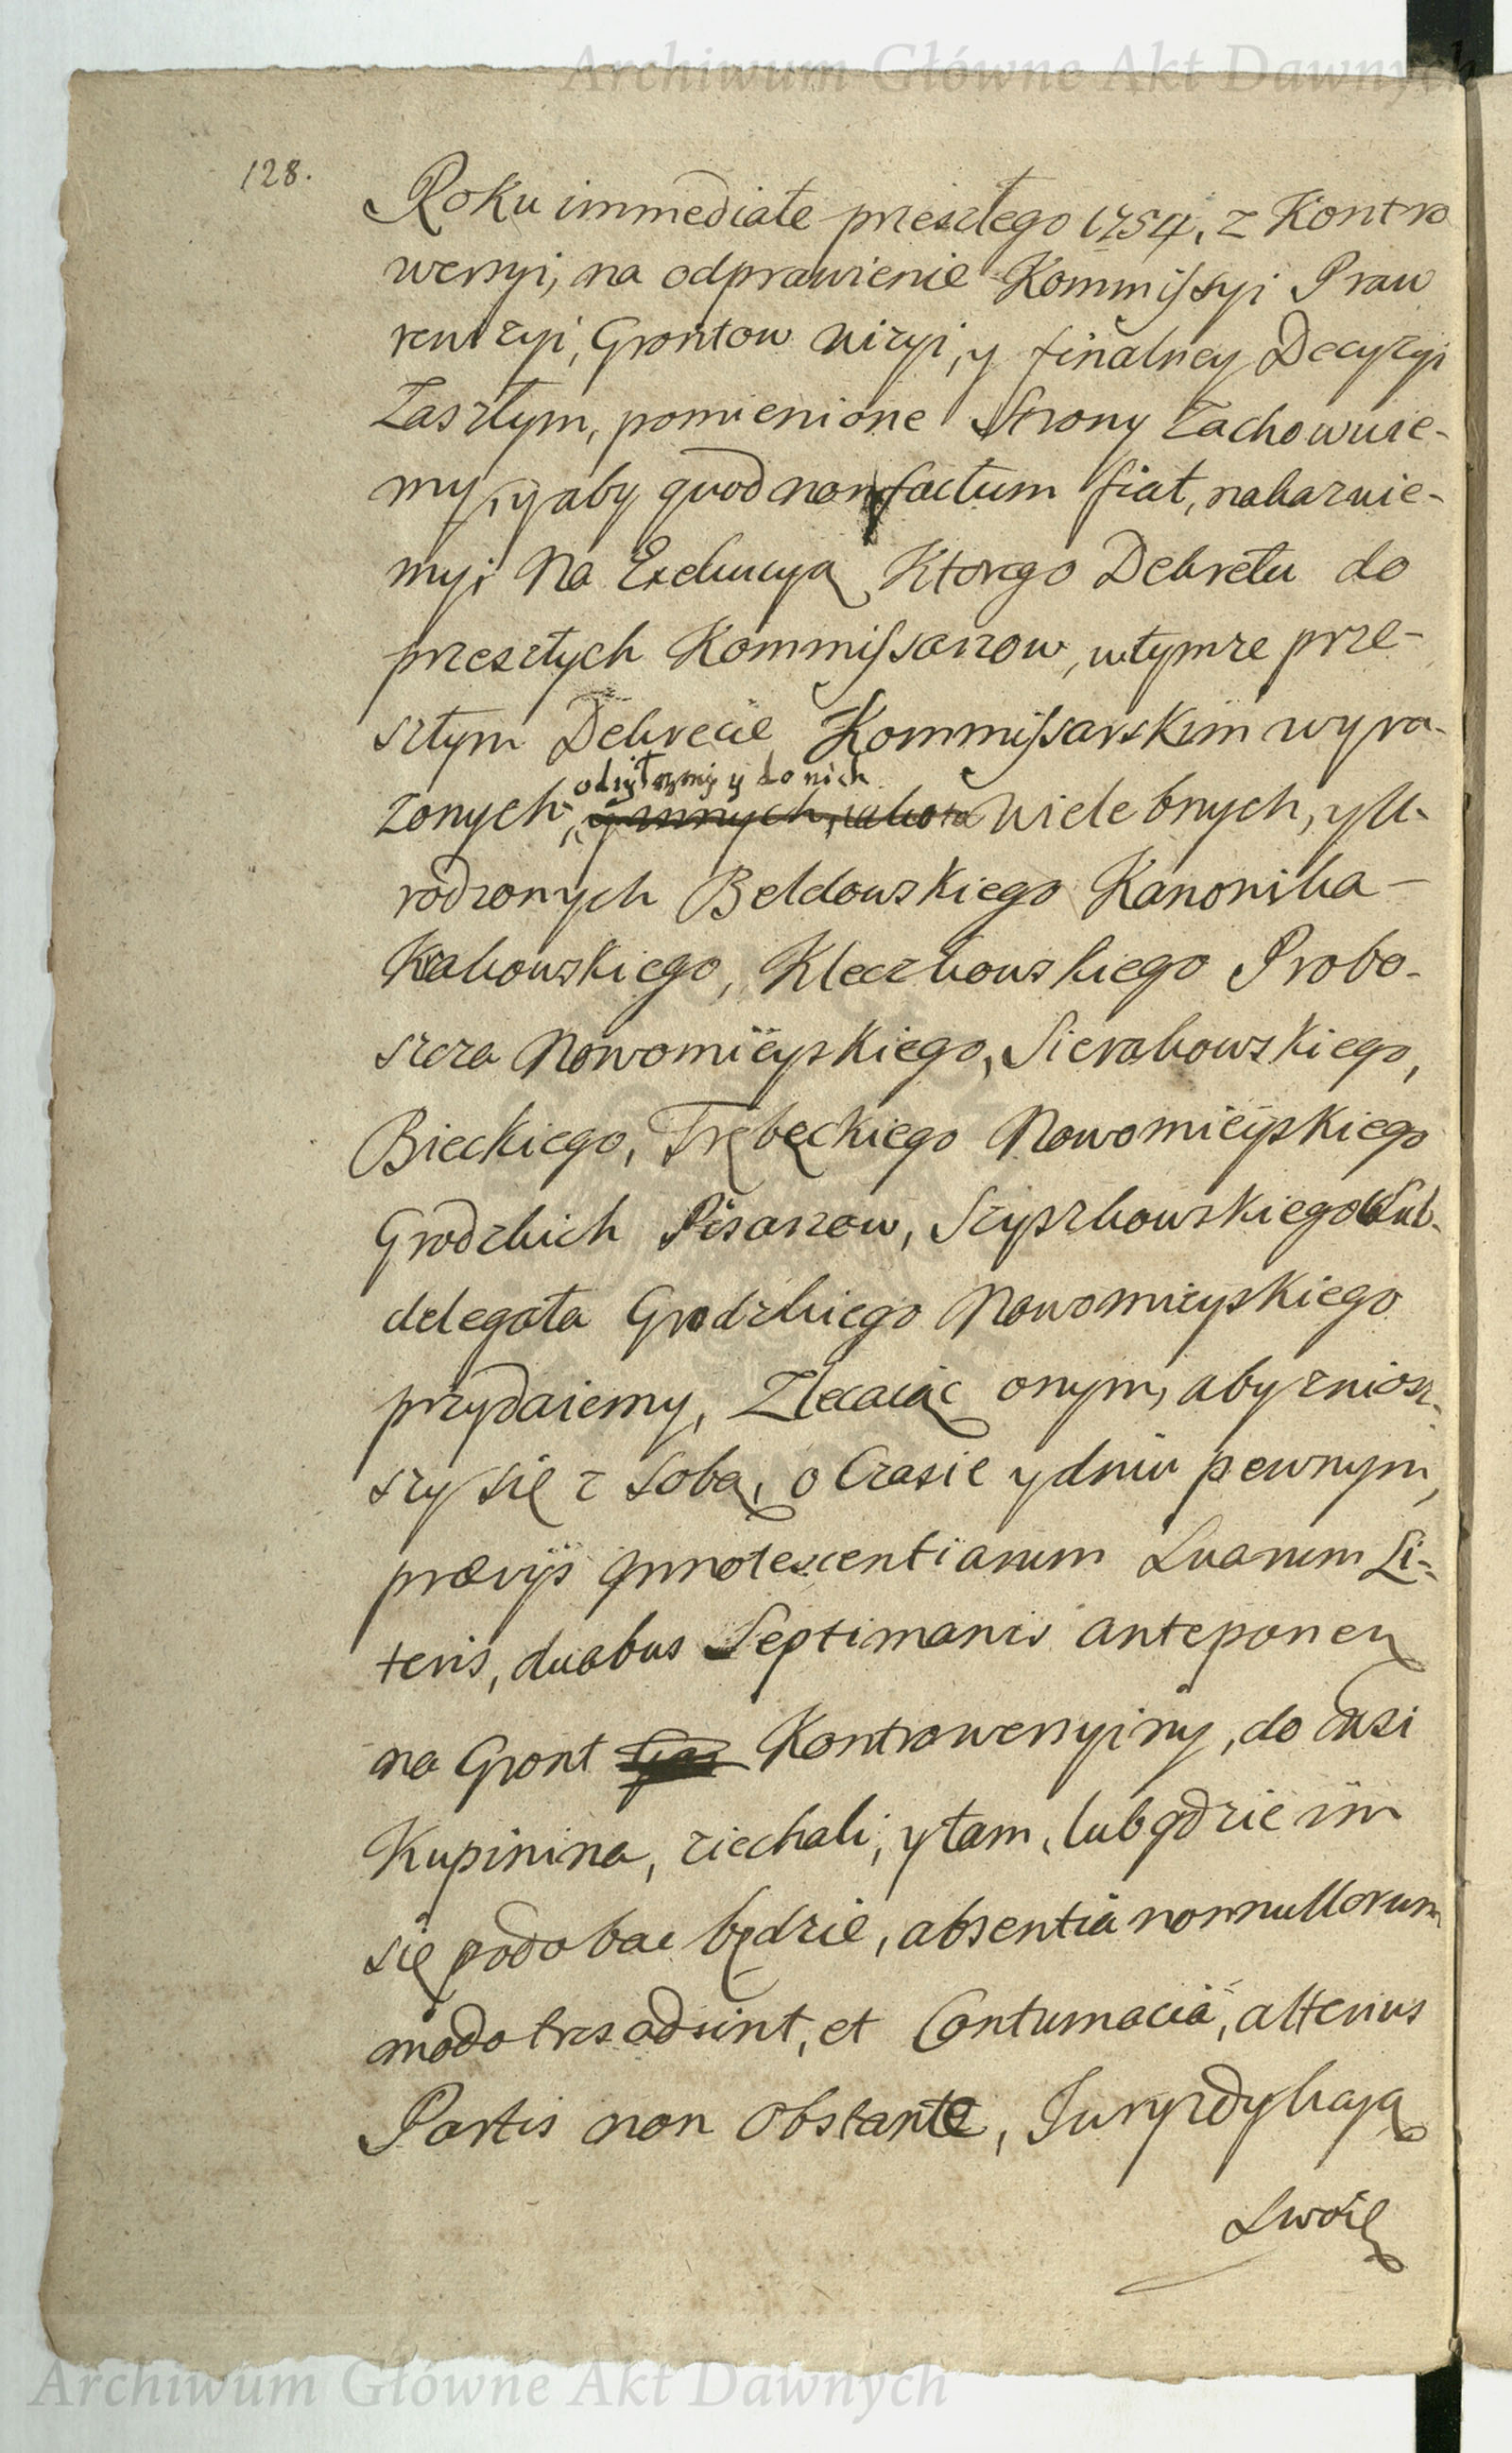 Archiwum Główne Akt Dawnych
128.
Roku immediate przeszłego 1754, z Kontro
wersyi, na odprawienie Kommissyi Praw
rewizyi, Grontow wizyi, y finalney Decyzyi
Zaszłym, pomienione Strony Zachowuie-
my, y aby quod non factum fiat, nakazuie-
my; Na Exekucyą Ktorego Dekretu do
przeszłych Kommissarzow, w tymże prze-
szłym Dekrecie Kommissarskim wyra-
żonych, odżyłzmy y do nich Wielebnych, y U-
rodzonych Bełdowskiego Kanonika
Krakowskiego, Kleczkowskiego Probo-
szcza Nowomieyskiego, Sierakowskiego,
Bieckiego, Trębęckiego Nowomieyskiego
Grodzkich Pisarzow, Szyszkowskiego Sub-
delegata Grodzkiego Nowomieyskiego
przydaiemy, Zlecaiąc onym, aby zniosz-
szy się z sobą, o Czasie y dniu pewnym,
prævijs Innotescentiarum Suarum Li-
teris, duabus Septimanis anteponen
na Gront Kontrowersyiny, do Wsi
Kupinina, ziechali, y tam, lub gdzie im
się podobac będzie, absentiâ nonnullorum
modo tres adsint, et Contumaciâ, alterius
Partis non obstante, Juryzdykcyą
Swoię
Archiwum Główne Akt Dawnych